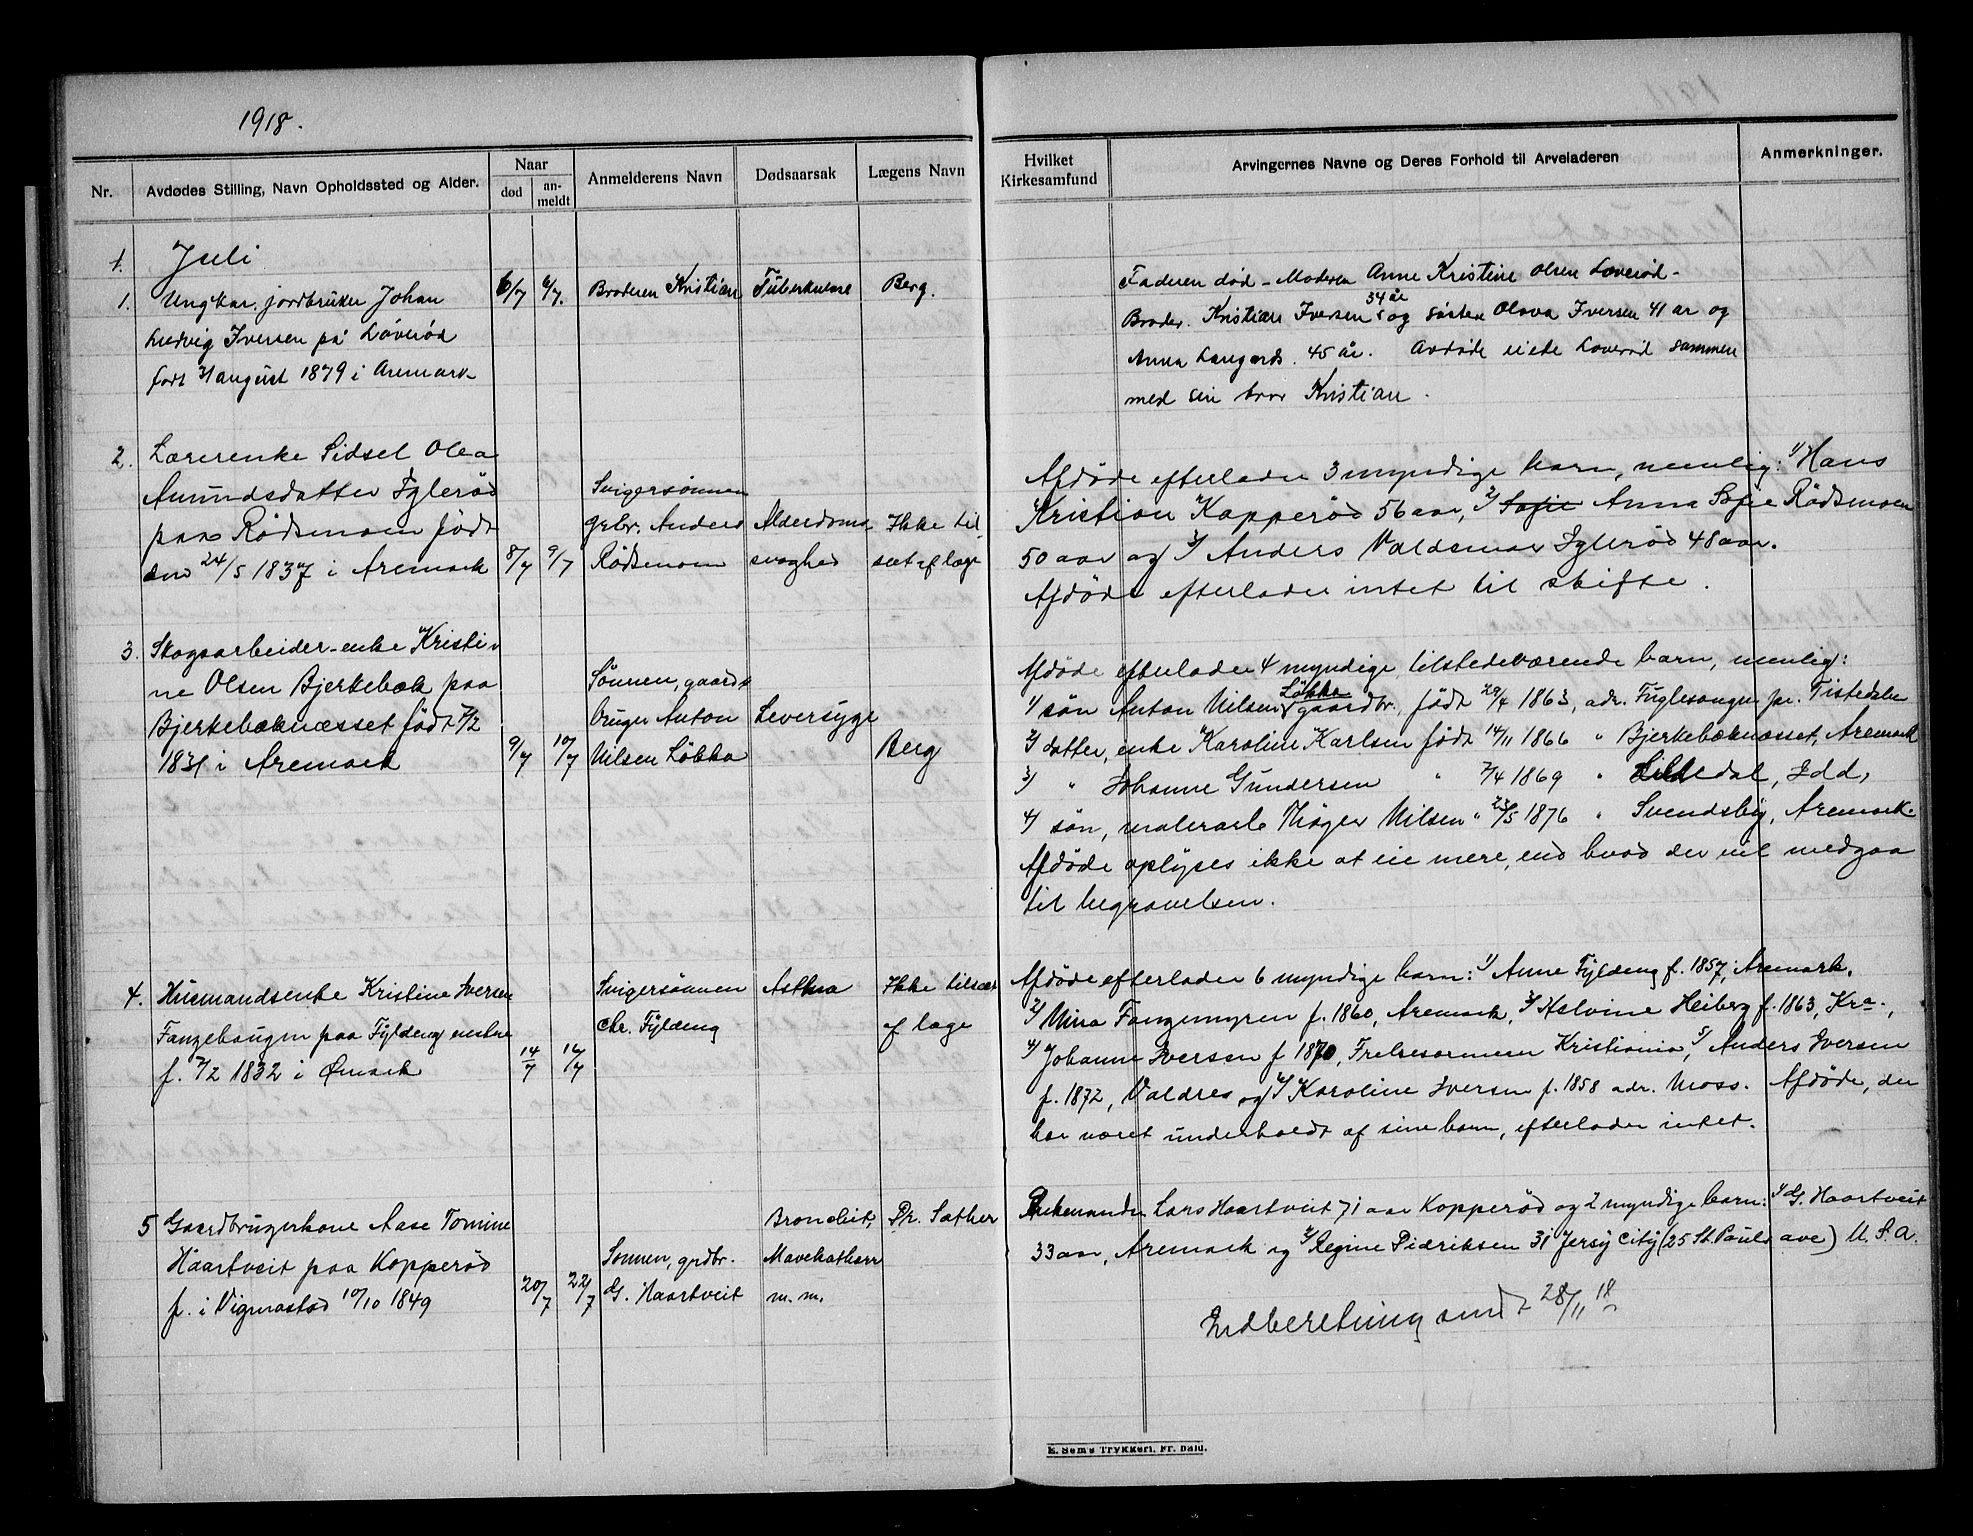 1918.
Nr. Avdødes Stilling, Navn Opholdssted og Alder. Naar død an-meldt Anmelderens Navn Dødsaarsak Lægens Navn
Hvilket Kirkesamfund Arvingernes Navne og Deres Forhold til Arveladeren Anmerkninger.
1. Juli
1. Ungkar, jordbruker Johan 6/7 6/7. Broderen Kristian Tuberkulose Berg.
Ludvig Iversen på Løverød
født 31 august 1879 i Aremark
Faderen død - Moderen Anne Kristine Olsen Løverød -
Broder. Kristian Iversen 34 år og søster Olava Iversen 41 år og
Anna Langards. 45 år. Avdøde eiede Løverød sammen
med sin bror Kristian.
2. Lærerenke Sidsel Olea
Amundsdatter Iglerød
paa Rødsmoen født
den 24/5 1837 i Aremark 8/7 9/7
Svigersønnen
grbr. Anders
Rødsmoen
Alderdoms
svaghed
Ikke til
set af læge
Afdøde efterlader 3 myndige barn, nemlig: 1/ Hans
Kristian Kopperød 56 aar, 2/ Sofie Anna Sofie Rødsmoen
50 aar og 3/ Anders Valdemar Iglerød 48 aar.
Afdøde efterlader intet til skifte.
3. Skogsarbeider-enke Kristi-
ne Olsen Bjerkebæk paa
Bjerkebæknæsset født 7/2
1831 i Aremark 9/7 10/7
Sønnen, gaard-
bruger Anton
Nilsen Løkka
Leversyge
Berg
Afdøde efterlader 4 myndige tilstedeværende barn, nemlig:
1/ søn Anton Nilsen Løkka gaardbr., født 29/4 1863, adr. Fuglesangen pr. Tistedalen
2/ datter, enke Karoline Karlsen født 14/11 1866 " Bjerkebæknæsset, Aremark
3/ " Johanne Gundersen " 7/4 1869 " Liledal, Idd,
4/ søn, malerarb. Thøger Nilsen " 23/5 1876 " Svendsby, Aremark.
Afdøde oplyses ikke at eie mere, end hvad der vil medgaa
til begravelsen.
4. Husmandsenke Kristine Iversen
Fangehaugen paa Fyldeng enstne
f. 7/2 1832 i Ømark 14/7 16/7
Svigersønnen
Chr. Fyldeng
Asthma
Ikke tilsæt
af læge
Afdøde efterlader 6 myndige barn: 1/ Anne Fyldeng f. 1857, Aremark,
2/ Mina Fangemyren f. 1860, Aremark, 3/ Halvine Heiberg f. 1863, Kra.,
4/ Johanne Iversen f 1870, Frelsesarmeen Kristiania, 5/ Anders Iversen
f. 1872, Valdres og 6/ Karoline Iversen f. 1858 adr. Moss. Afdøde, der
har været underholdt af sine barn, efterlader intet.
5 Gaardbrugerkone Aase Tomine
Haartveit paa Kopperød
f. i Vigmostad 10/10 1849 20/7 22/7
Sønnen, grdbr.
G. Haartveit
Bronchit,
Mavekatharr
m. m.
Dr. Sæther
Enkemanden Lars Haartveit 71 aar Kopperød og 2 myndige barn: 1/ G. Haartveit
33 aar, Aremark og 2/ Regine Didriksen 31 Jersy City (25 St. Pauls ave) U. S. A.
Indberetning sendt 28/11 18
E. Sem's Trykkeri, Fr. hald.